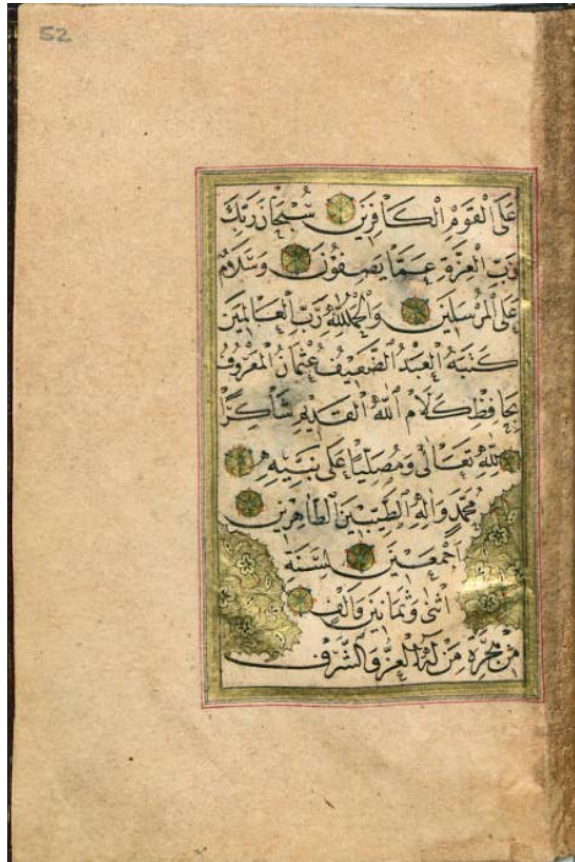 52
عَلَى الْقَوْمِ الْكَافِرِينَ سُبْحَانَ رَبِّكَ
رَبِّ الْعِزَّةِ عَمَّا يَصِفُونَ وَسَلَامٌ
عَلَى الْمُرْسَلِينَ وَالْحَمْدُ لِلَّهِ رَبِّ الْعَالَمِينَ
كَتَبَهُ الْعَبْدُ الضَّعِيفُ عُثْمَانُ الْمَعْرُوفُ
بِحَافِظِ كَلَامِ اللَّهِ الْقَدِيمِ شَاكِرًا
لِلَّهِ تَعَالَى وَمُصَلِّيًا عَلَى نَبِيِّهِ
مُحَمَّدٍ وَآلِهِ الطَّيِّبِينَ الطَّاهِرِينَ
أَجْمَعِينَ لِسَنَةِ
اثْنَى وَثَمَانِينَ وَأَلْفٍ
مِنْ هِجْرَةِ مَنْ لَهُ الْعِزُّ وَالشَّرَفُ